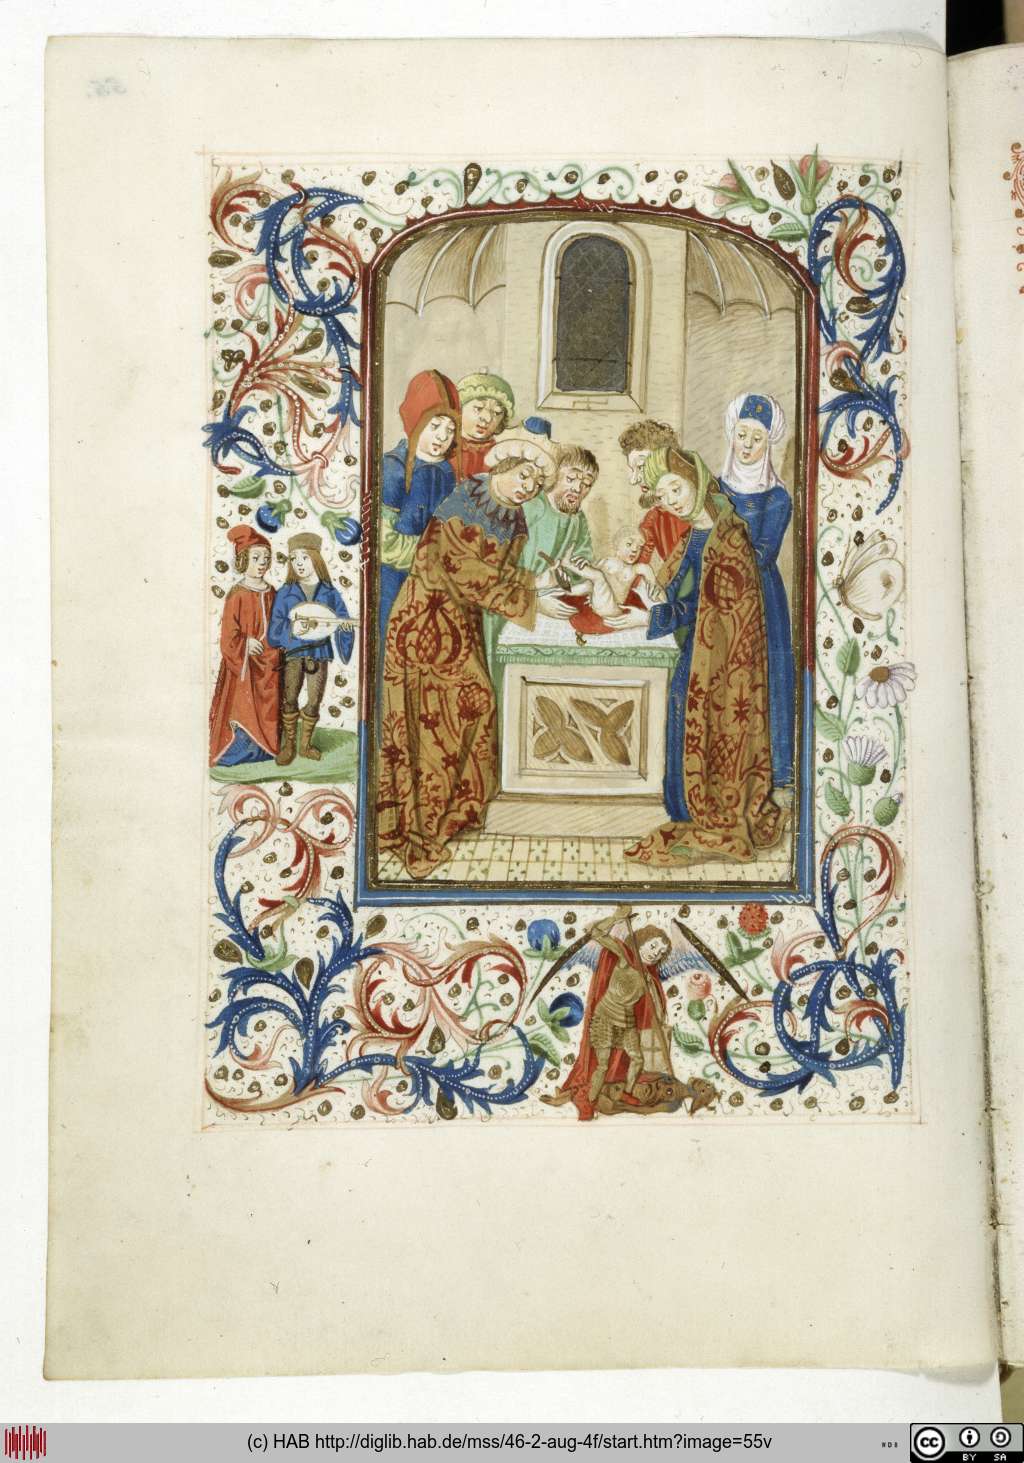 (c) HAB http://diglib.hab.de/mss/46-2-aug-4f/start.htm?image=55v
cc BY SA